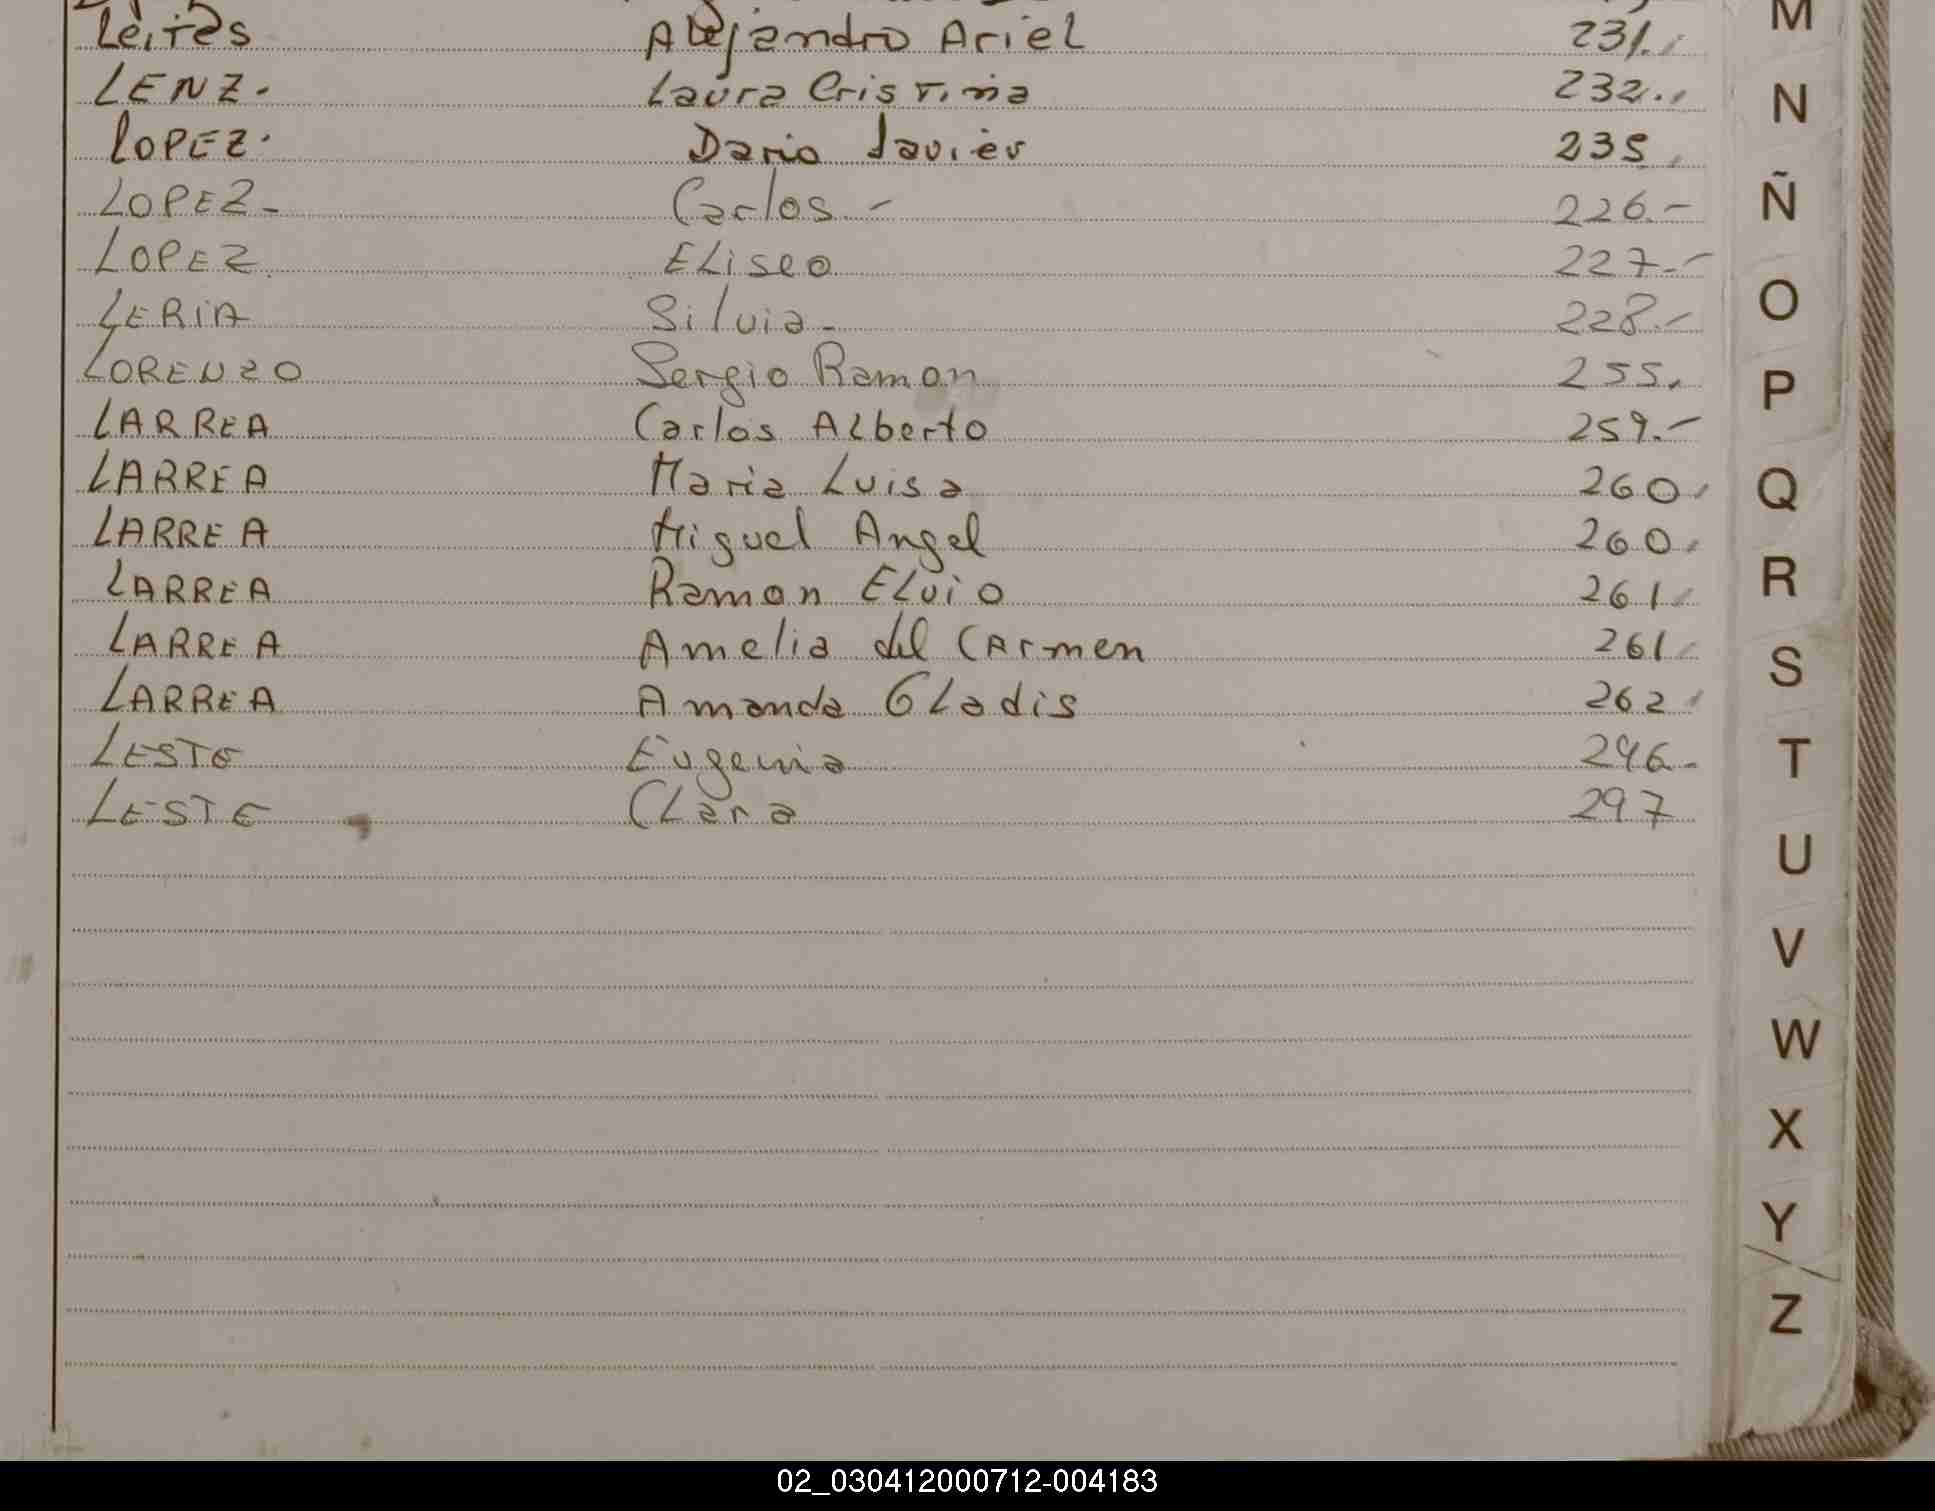 Leites Alejandro Ariel 231.
LENZ. Laura Cristina 232..
LOPEZ. Dario Javier 235
LOPEZ- Carlos - 226.-
LOPEZ. ELiseo 227.-
LERIA Silvia- 228.-
LORENZO Sergio Ramon 255.
LARREA Carlos ALberto 259.-
LARREA Maria Luisa 260
LARREA Miguel Angel 260
LARREA Ramon ELvio 261
LARREA Amelia del CArmen 261
LARREA Amanda GLadis 262
LESTE Eugenia 296-
LESTE CLara 297
M
N
Ñ
O
P
Q
R
S
T
U
V
W
X
Y
Z
02_030412000712-004183